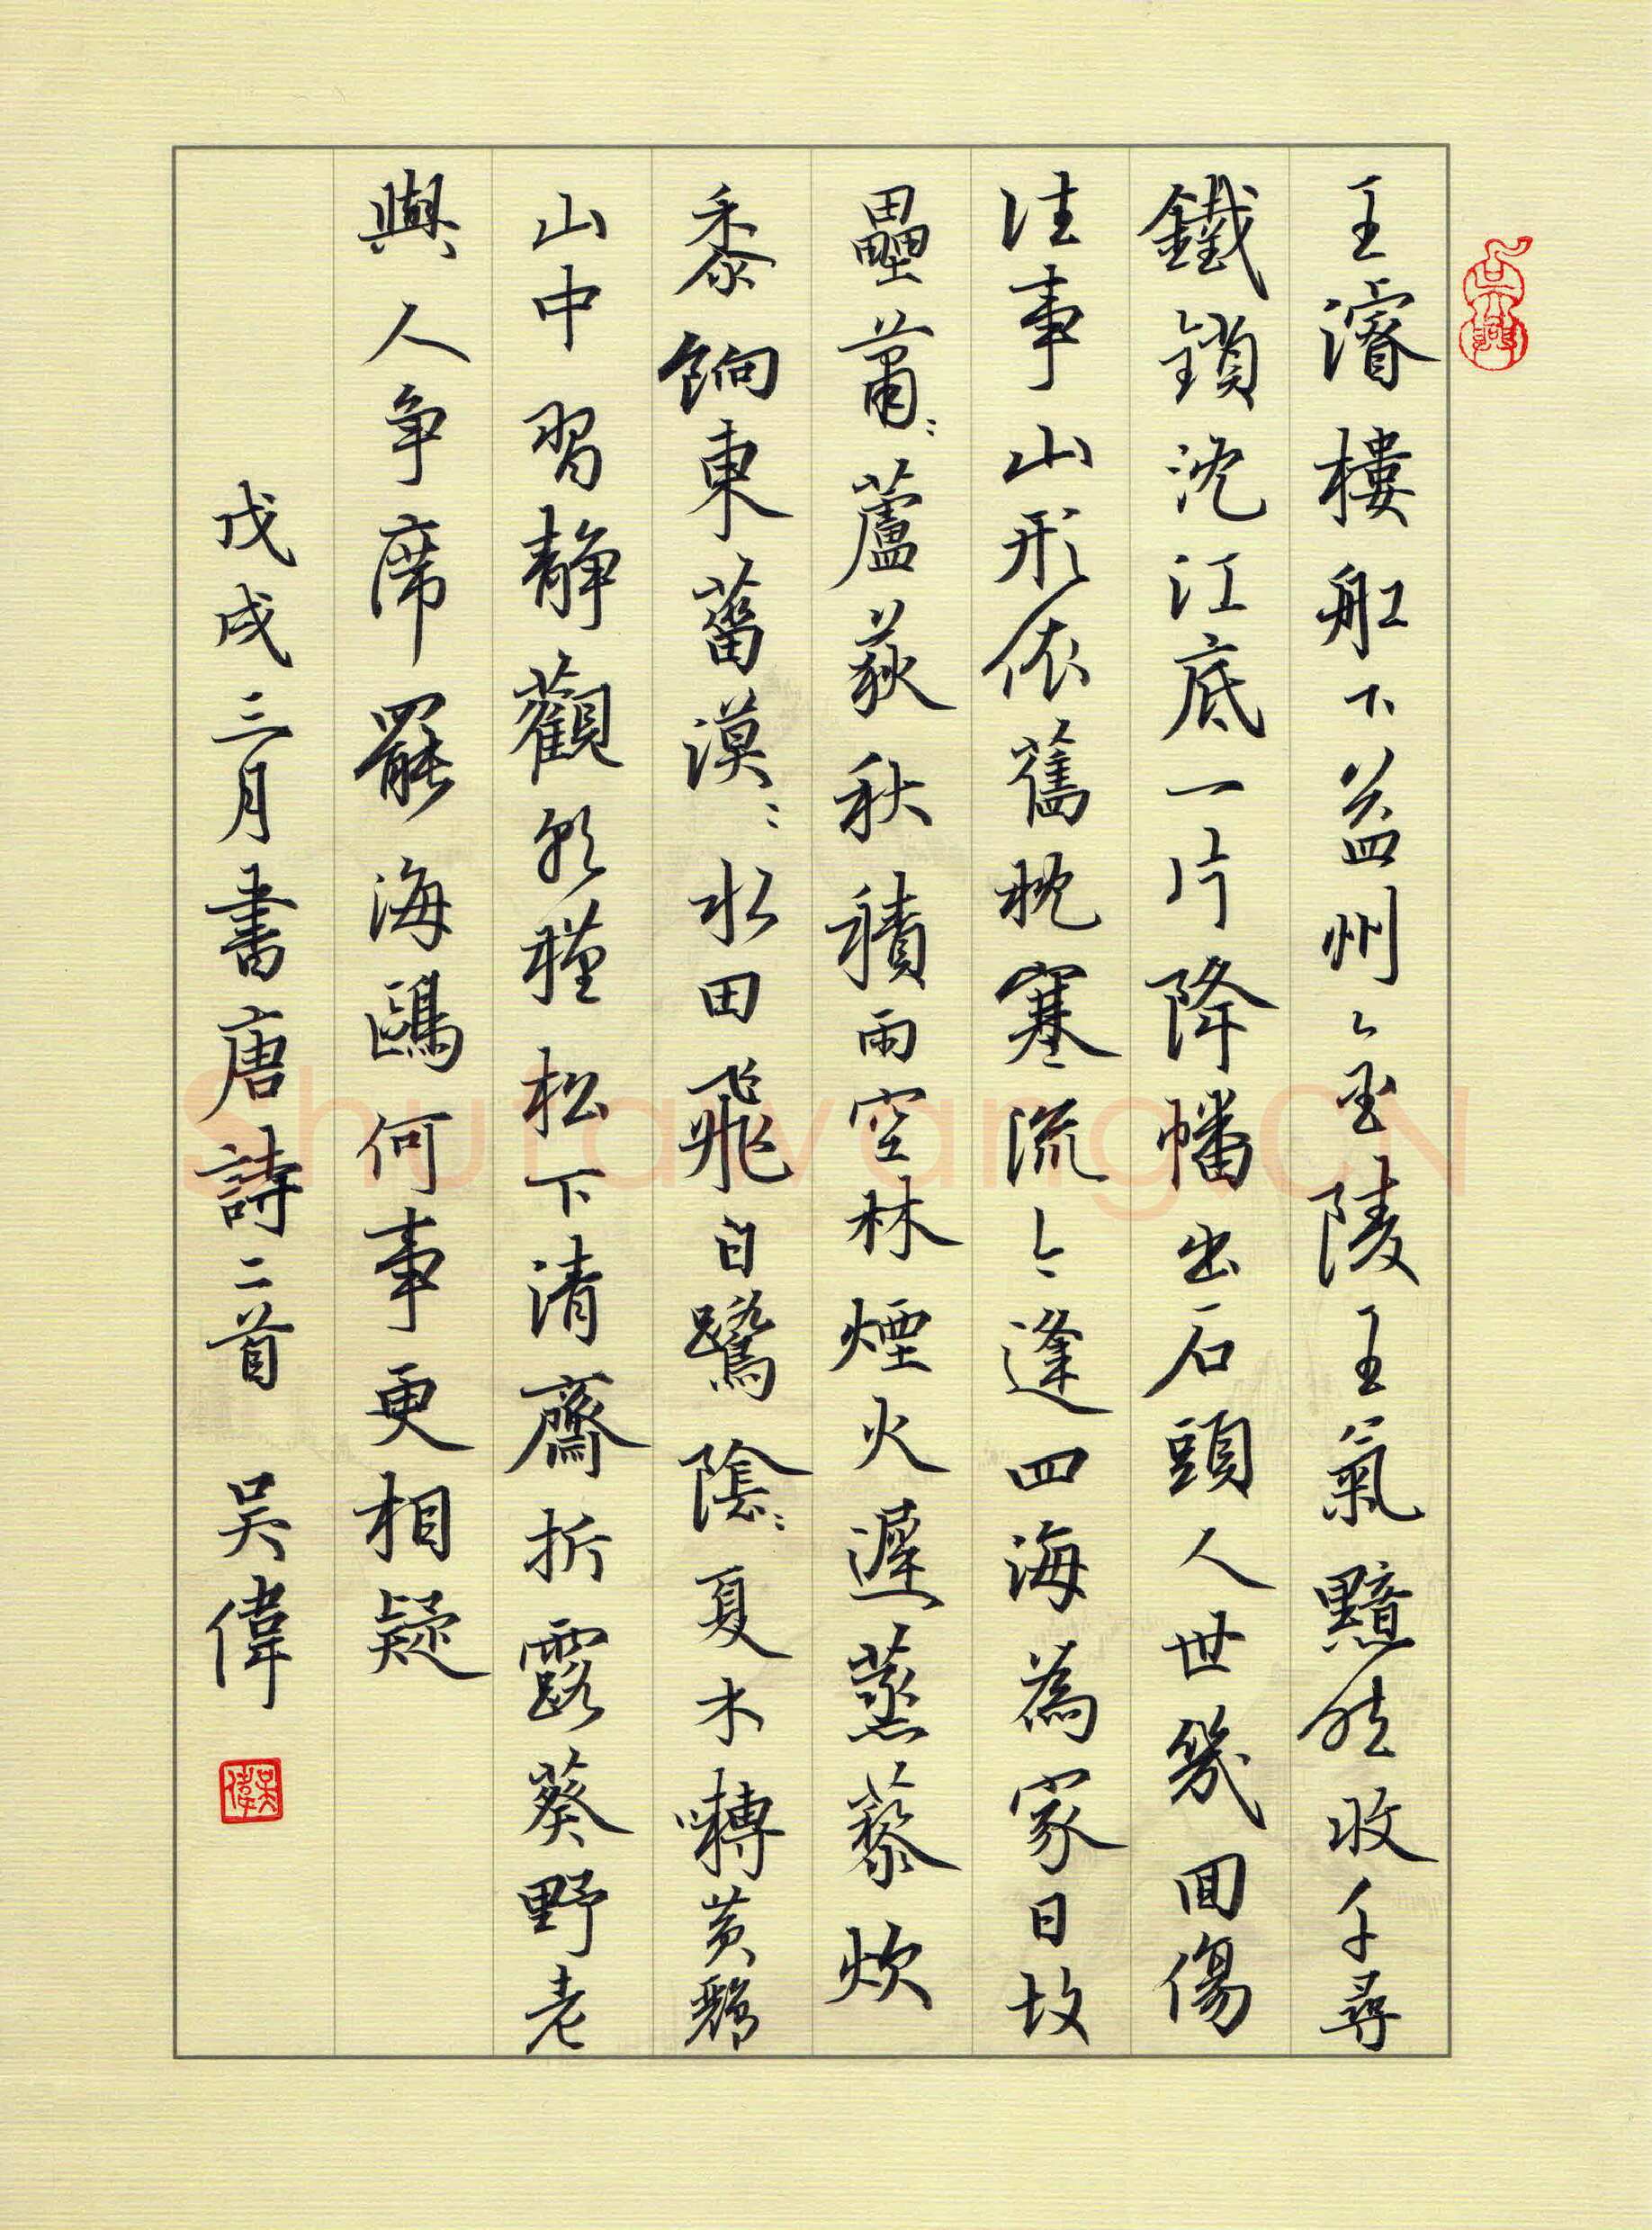 吳興
王濬樓舡下益州金陵王氣黯然收千尋
鐵鎖沈江底一片降幡出石頭人世幾回傷
往事山形依舊枕寒流今逢四海為家日故
壘蕭〻蘆荻秋積雨空林煙火遲蒸藜炊
黍餉東菑漠〻水田飛白鷺陰〻夏木囀黃鸝
山中習靜觀朝槿松下清齋折露葵野老
與人爭席罷海鷗何事更相疑
戊戌三月書唐詩二首 吳偉
吳偉
Shufawang.CN